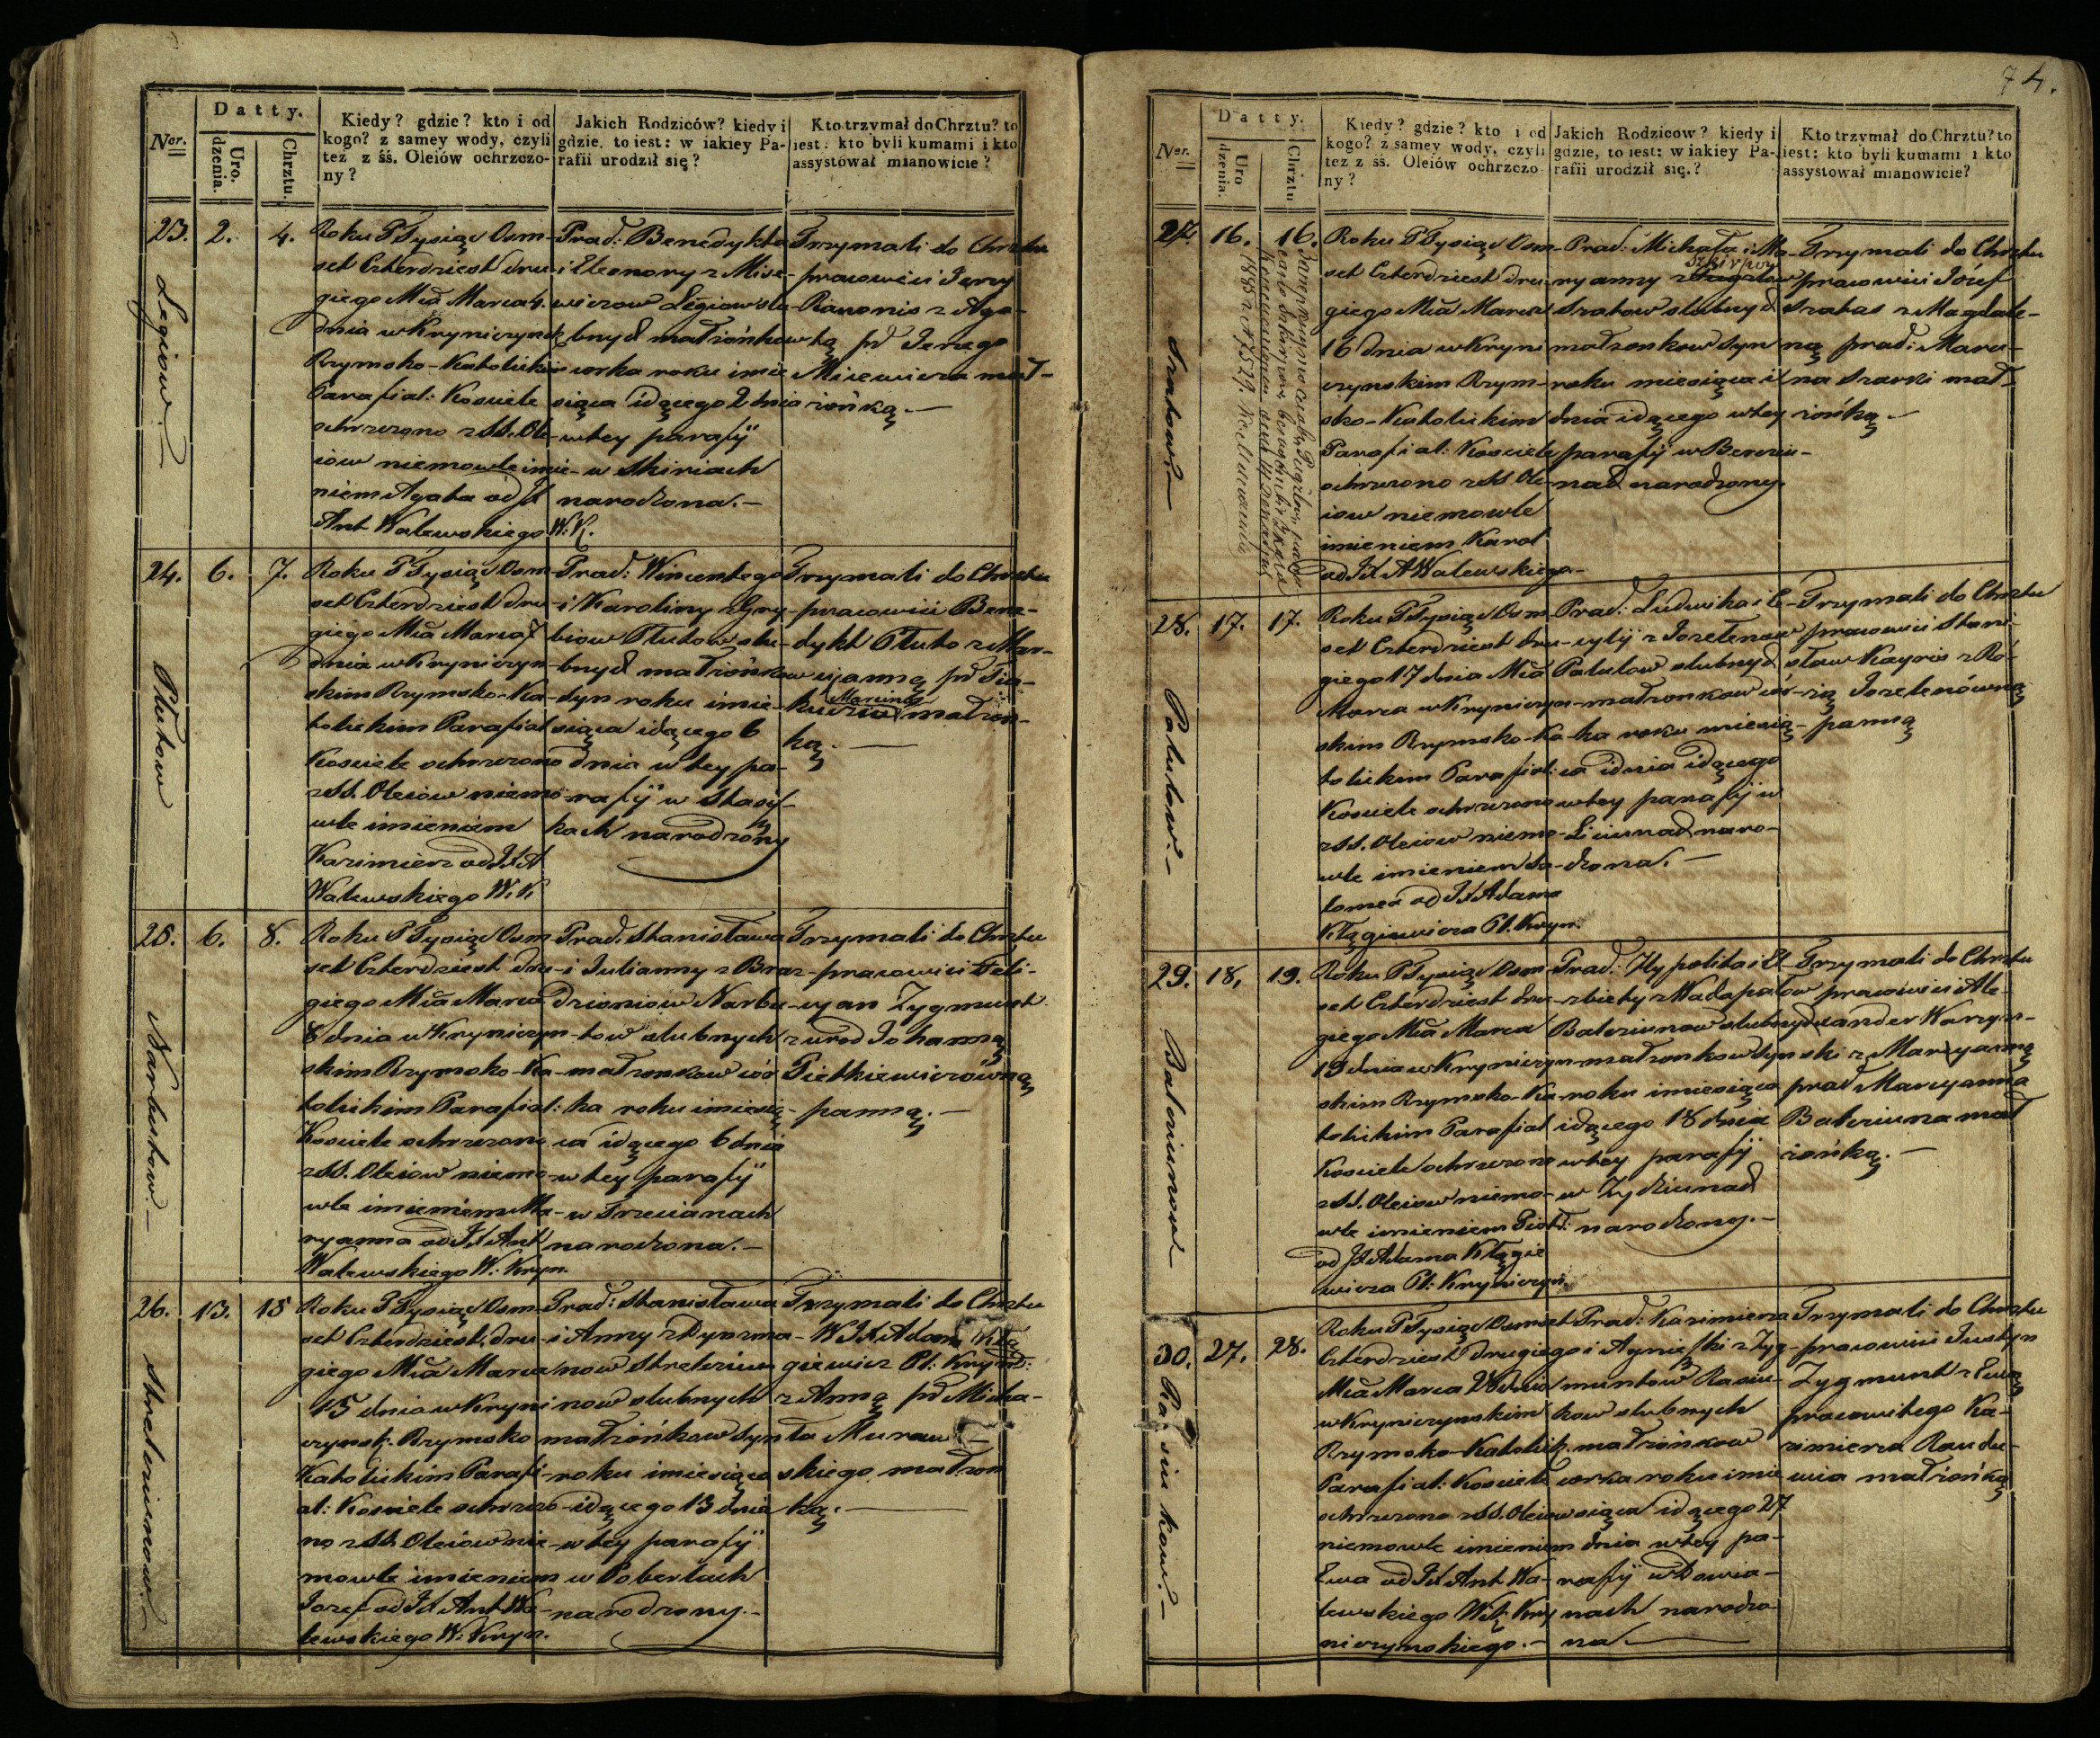 74.
Datty.
Nor.
Uro.
dzenia.
Chrztu.
Kiedy? gdzie? kto i od
kogo? z samey wody, czyli
tez z śś. Oleiów ochrzczo-
ny?
Jakich Rodziców? kiedy i
gdzie, to iest: w iakiey Pa-
rafii urodził się?
Kto trzymał do Chrztu? to
iest: kto byli kumami i kto
assystował mianowicie?
23. 2. 4.
Legiow.
Roku P Tysiąc Osm-
set Czterdziest dru-
giego Mca Marca 4.
dnia w Kryniczynsk
Rzymsko-Katolickim
Parafial: Kosciele
ochrzczono z SS. Ole-
iow niemowle imie-
niem Agata od JX
Ant Walewskiego W.K.
Prad: Benedykta
i Eleonory z Mice-
wiczow Legiow slu-
bnych małżonkow
corka roku i mie-
siąca idącego 2 dnia
w tey parafij
w Skiriach
narodzona.—
Trzymali do Chrztu
pracowici Jerzy
z Aga-
tą pd Jerzego
Micewicza mał-
żonką.—
24. 6. 7.
Plutow
Roku P Tysiąc Osm-
set Czterdziest dru-
giego Mca Marca 7
dnia w Kryniczyn-
skim Rzymsko-Ka-
tolickim Parafial
Kosciele ochrzczono
z SS. Oleiow niemo-
wle imieniem
Kazimierz od JX A
Walewskiego W.K.
Prad: Wincentego
i Karoliny z Gry-
biow Plutow slu-
bnych małżonkow
syn roku i mie-
siąca idącego 6
dnia w tey pa-
rafij w Stasyl-
kach narodzony
Trzymali do Chrztu
pracowici Bene-
dykt Pluto z Mar-
cyanną pd
Marcina
małżon-
ką.—
25. 6. 8.
Narbutow.—
Roku P Tysiąc Osm-
set Czterdziest dru-
giego Mca Marca
8 dnia w Kryniczyn-
skim Rzymsko-Ka-
tolickim Parafial:
Kosciele ochrzczono
z SS. Oleiow niemo-
wle imieniem Ma-
ryanna od JX Ant
Walewskiego W: Kryn.
Prad. Stanisława
i Julianny z Braz-
dzioniow Narbu-
tow slubnych
małżonkow cor-
ka roku i miesią-
ca idącego 6 dnia
w tey parafij
w Trzecianach
narodzona.—
Trzymali do Chrztu
pracowici Feli-
cyan Zygmunt
z urod Johanną
Pietkiewiczowną
panną.—
26. 13. 15
Streleciunow
Roku P Tysiąc Osm-
set Czterdziest dru-
giego Mca Marca
15 dnia w Kryni
czynsk: Rzymsko
Katolickim Parafi-
al: Kosciele ochrzczo-
no z SS. Oleiow nie-
mowle imieniem
Jozef od JX Ant Wa-
lewskiego W: Kryn.
Prad: Stanisława
i Anny z Dyrzma-
now Streleciu-
now slubnych
małżonkow syn
roku i miesiąca
idącego 13 dnia
w tey parafij
w Pobertach
narodzony.—
Trzymali do Chrztu
W JX Adam Kłą-
giewicz Pl: Kryn:
z Anną pd Micha-
ła Muraw
skiego małżon
ką.—
27. 16. 16.
Sratow.—
Roku P Tysiąc Osm-
set Czterdziest dru-
giego Mca Marca
16 dnia w Kryni
czynskim Rzym-
sko-Katolickim
Parafial: Kosciele
ochrzczono z SS. Ole-
iow niemowle
imieniem Karol
od JX A Walewskiego—
Prad: Michała i Ma-
ryanny z
Sratow slubnych
małżonkow syn
roku miesiąca i
dnia idącego w tey
parafij w Berciu-
nach narodzony.
Trzymali do Chrztu
pracowici Józef
Sratas z Magdale-
ną prad: Marci-
na mał-
żonką.—
28. 17. 17.
Palutow.—
Roku P Tysiąc Osm
set Czterdziest dru-
giego 17 dnia Mca
Marca w Kryniczyn-
skim Rzymsko-Ka-
tolickim Parafial:
Kosciele ochrzczono
z SS. Oleiow niemo-
wle imieniem Sa-
lomea od JX Adama
Kłągiewicza Pl. Kryn.
Prad: Ludwika i Ce-
cylij z Jozelenow
Palulow slubnych
małżonkow cor-
ka roku miesią-
ca i dnia idącego
w tey parafij w
Liciunach naro-
dzona.—
Trzymali do Chrztu
pracowici Stani-
sław Kayris z Ró-
zią Jozelenówną
panną
29. 18, 19.
Balciunow
Roku P Tysiąc Osm
set Czterdziest dru-
giego Mca Marca
19 dnia w Kryniczyn-
skim Rzymsko-Ka-
tolickim Parafial
Kosciele ochrzczono
z SS. Oleiow niemo-
wle imieniem Piotr:
od JX Adama Kłągie
wicza Pl: Kryniczyn.
Prad: Hypolita i El-
zbiety z Wadapalow
Balciunow slubnych
małżonkow syn
roku i miesiąca
idącego 18 dnia
w tey parafij
w Zydziunach
narodzony.—
Trzymali do Chrztu
pracowici Ale-
xander Warzyn-
ski z Maryanną
prad Marcyanna
Balciuna mał
żonką.—
30. 27. 28.
Rasiukow.—
Roku P Tysiąc Osmset
Czterdziest drugiego
Mca Marca 28 dnia
w Kryniczynskim
Rzymsko-Katolick
Parafial: Kosciele
ochrzczono z SS. Oleiow
niemowle imieniem
Ewa od JX Ant Wa-
lewskiego Wik: Kry
niczynskiego.—
Prad: Kazimierza
i Agnieszki z Zyg-
muntow Rasiu-
kow slubnych
małżonkow
corka roku i mie
siąca idącego 27
dnia w tey pa-
rafij w Dowia-
nach narodzo
na—
Trzymali do Chrztu
pracowici Justyn
Zygmunt z Ewą
pracowitego Ka-
zimierza Raudu-
cia małżonką